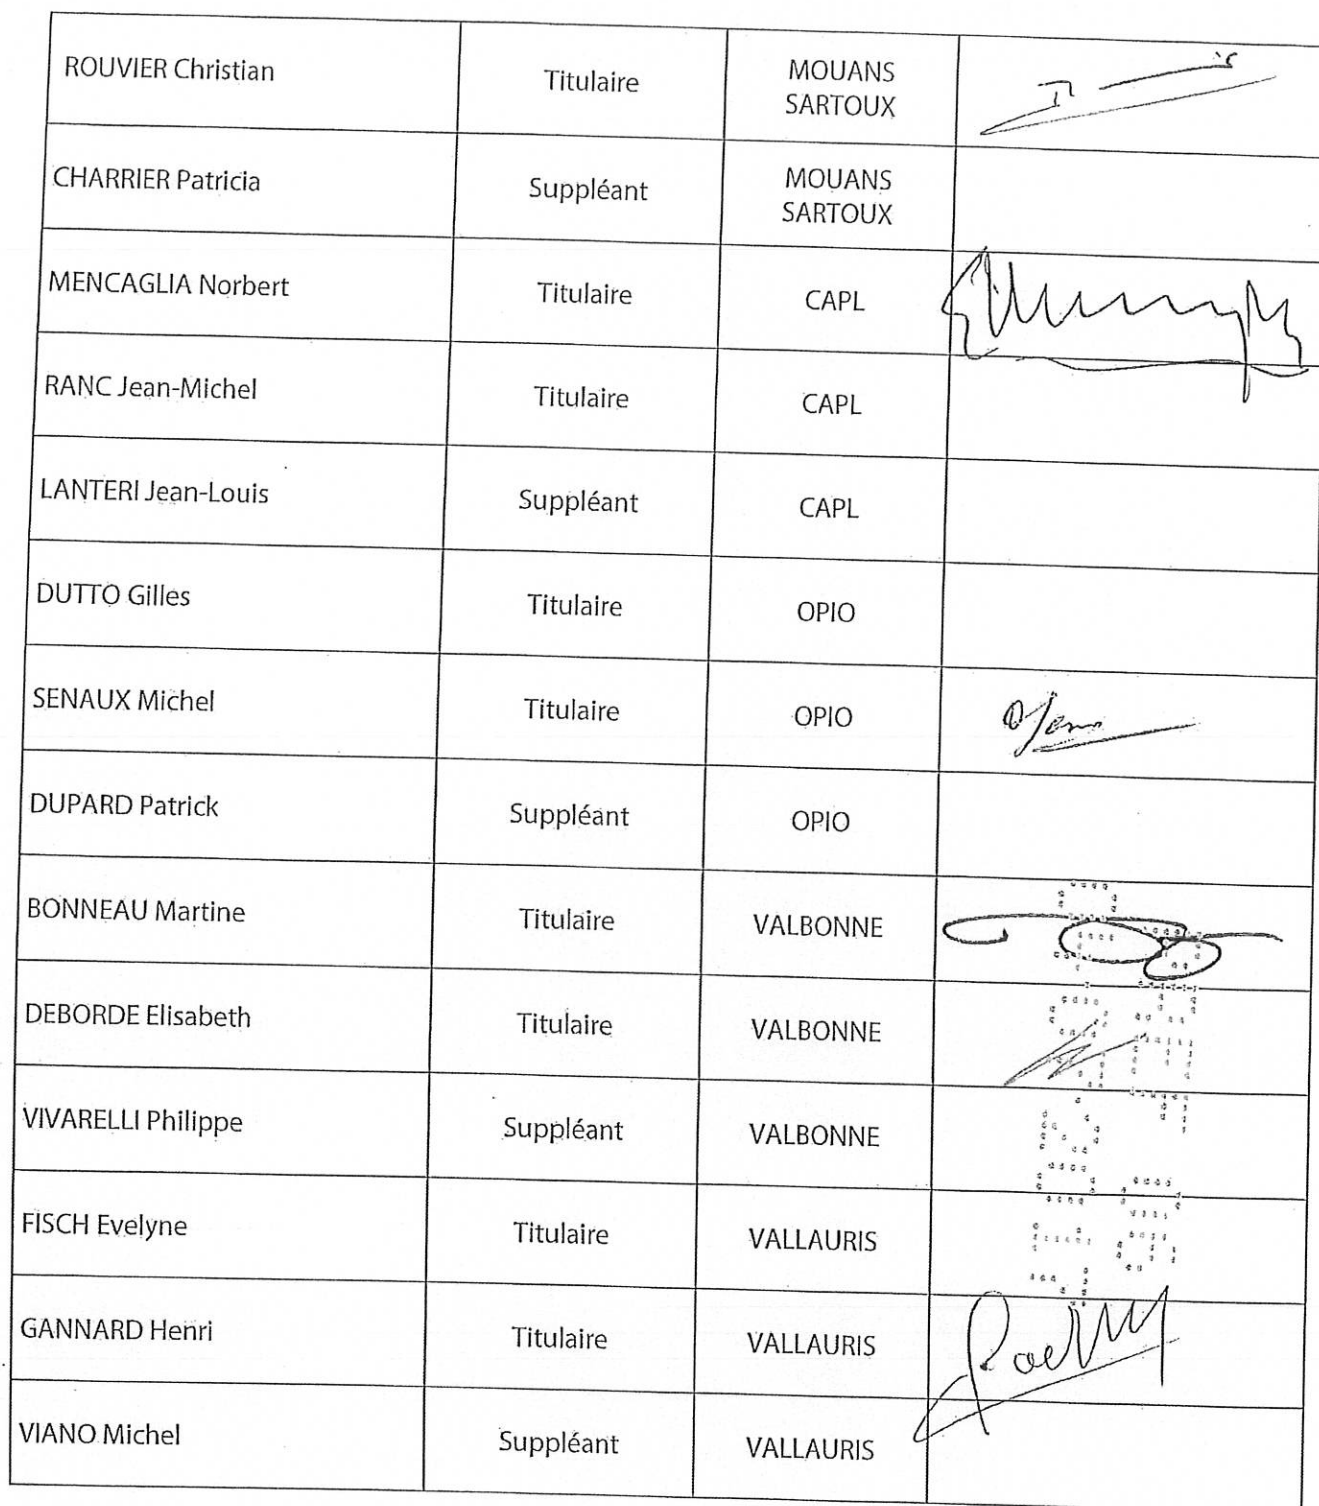 ROUVIER Christian Titulaire MOUANS
SARTOUX
CHARRIER Patricia Suppléant MOUANS
SARTOUX
MENCAGLIA Norbert Titulaire CAPL
RANC Jean-Michel Titulaire CAPL
LANTERI Jean-Louis Suppléant CAPL
DUTTO Gilles Titulaire OPIO
SENAUX Michel Titulaire OPIO
DUPARD Patrick Suppléant OPIO
BONNEAU Martine Titulaire VALBONNE
DEBORDE Elisabeth Titulaire VALBONNE
VIVARELLI Philippe Suppléant VALBONNE
FISCH Evelyne Titulaire VALLAURIS
GANNARD Henri Titulaire VALLAURIS
VIANO Michel Suppléant VALLAURIS